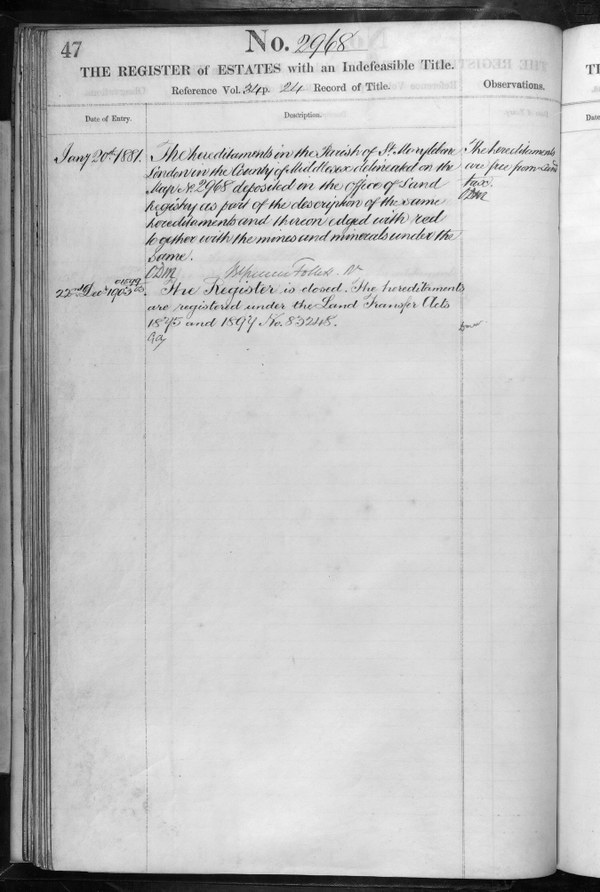 47
No. 2968
THE REGISTER of ESTATES with an Indefeasible Title.
Reference Vol. 34 p. 24 Record of Title.
Observations.
Date of Entry.
Description.
Jany 20th 1881.
The hereditaments in the Parish of St. Marylebone
London in the County of Middlesex delineated on the
Map No. 2968 deposited in the office of Land
Registry as part of the description of the same
hereditaments and thereon edged with red
together with the mines and minerals under the
same.
The hereditaments
are free from Land
tax.
22nd Decr 1903.
The Register is closed. The hereditaments
are registered under the Land Transfer Acts
1875 and 1897 No. 83248.